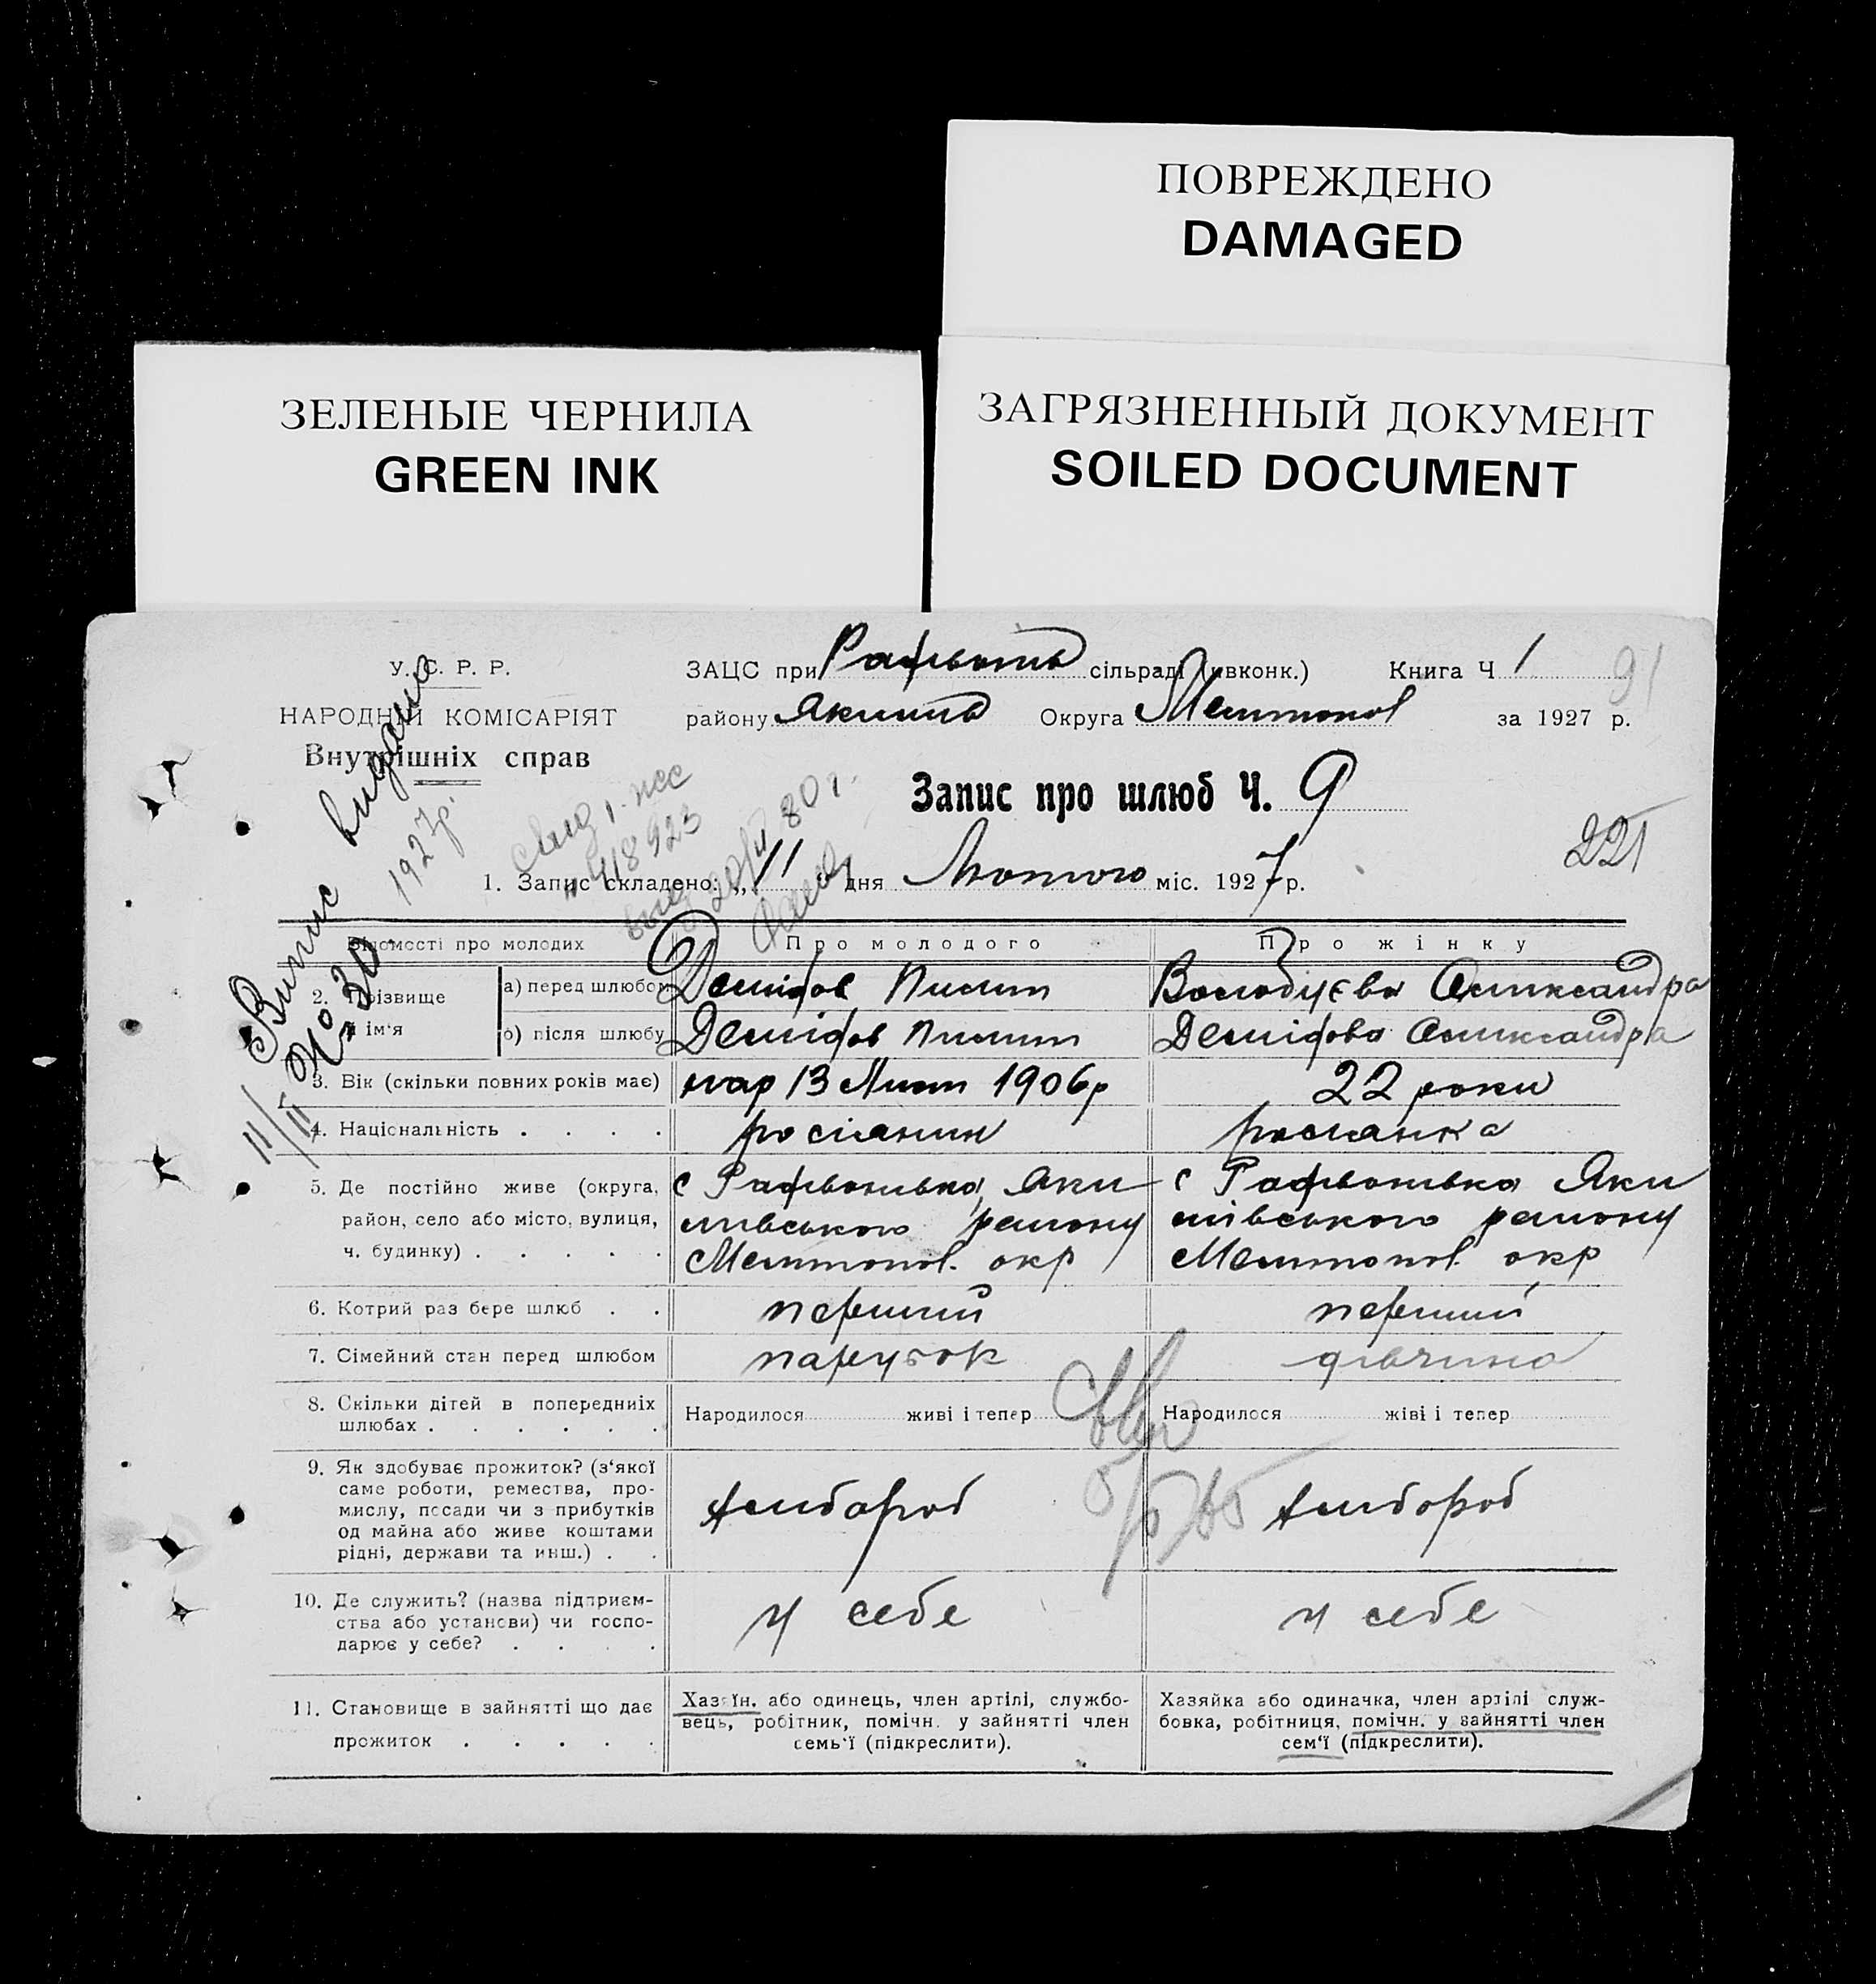 ПОВРЕЖДЕНО
DAMAGED
ЗЕЛЕНЫЕ ЧЕРНИЛА
GREEN INK
ЗАГРЯЗНЕННЫЙ ДОКУМЕНТ
SOILED DOCUMENT
У. С. Р. Р.
НАРОДНІЙ КОМІСАРІЯТ
Внутрішніх справ
ЗАЦС при сільраді (рвконк.) Книга Ч 1
91
району Округа за 1927 р.
Запис про шлюб Ч. 9
221
Випис видано
№ 30
1927р.
11/II
418923
1. Запис складено: „11“ дня Лютого міс. 1927 р.
Відомості про молодих Про молодого Про жінку
2. Прізвище й ім'я
а) перед шлюбом Демідов Пилип
Александра
б) після шлюбу Демідов Пилип Демідова Александра
3. Вік (скільки повних років має) нар 13 Лют 1906р 22 роки
4. Національність . . . . росіянин росіянка
5. Де постійно живе (округа, район, село або місто, вулиця, ч. будинку) . . . . .
с Яки
мівського району
Мелітопол. окр
с Яки
мівського району
Мелітопол. окр
6. Котрий раз бере шлюб . . перший перший
7. Сімейний стан перед шлюбом парубок дівчина
8. Скільки дітей в попередніх
шлюбах . . . . . .
Народилося живі і тепер
Народилося жіві і тепер
9. Як здобуває прожиток? (з'якої
саме роботи, ремества, про-
мислу, посади чи з прибутків
од майна або живе коштами
рідні, держави та инш.) . .
хлібороб хлібороб
10. Де служить? (назва підприєм-
ства або установи) чи госпо-
дарює у себе? . . . .
у себе у себе
11. Становище в зайнятті що дає
прожиток . . . . .
Хазяїн. або одинець, член артілі, службо-
вець, робітник, помічн. у зайнятті член
семь'ї (підкреслити).
Хазяйка або одиначка, член артілі служ-
бовка, робітниця, помічн. у зайнятті член
сем'ї (підкреслити).